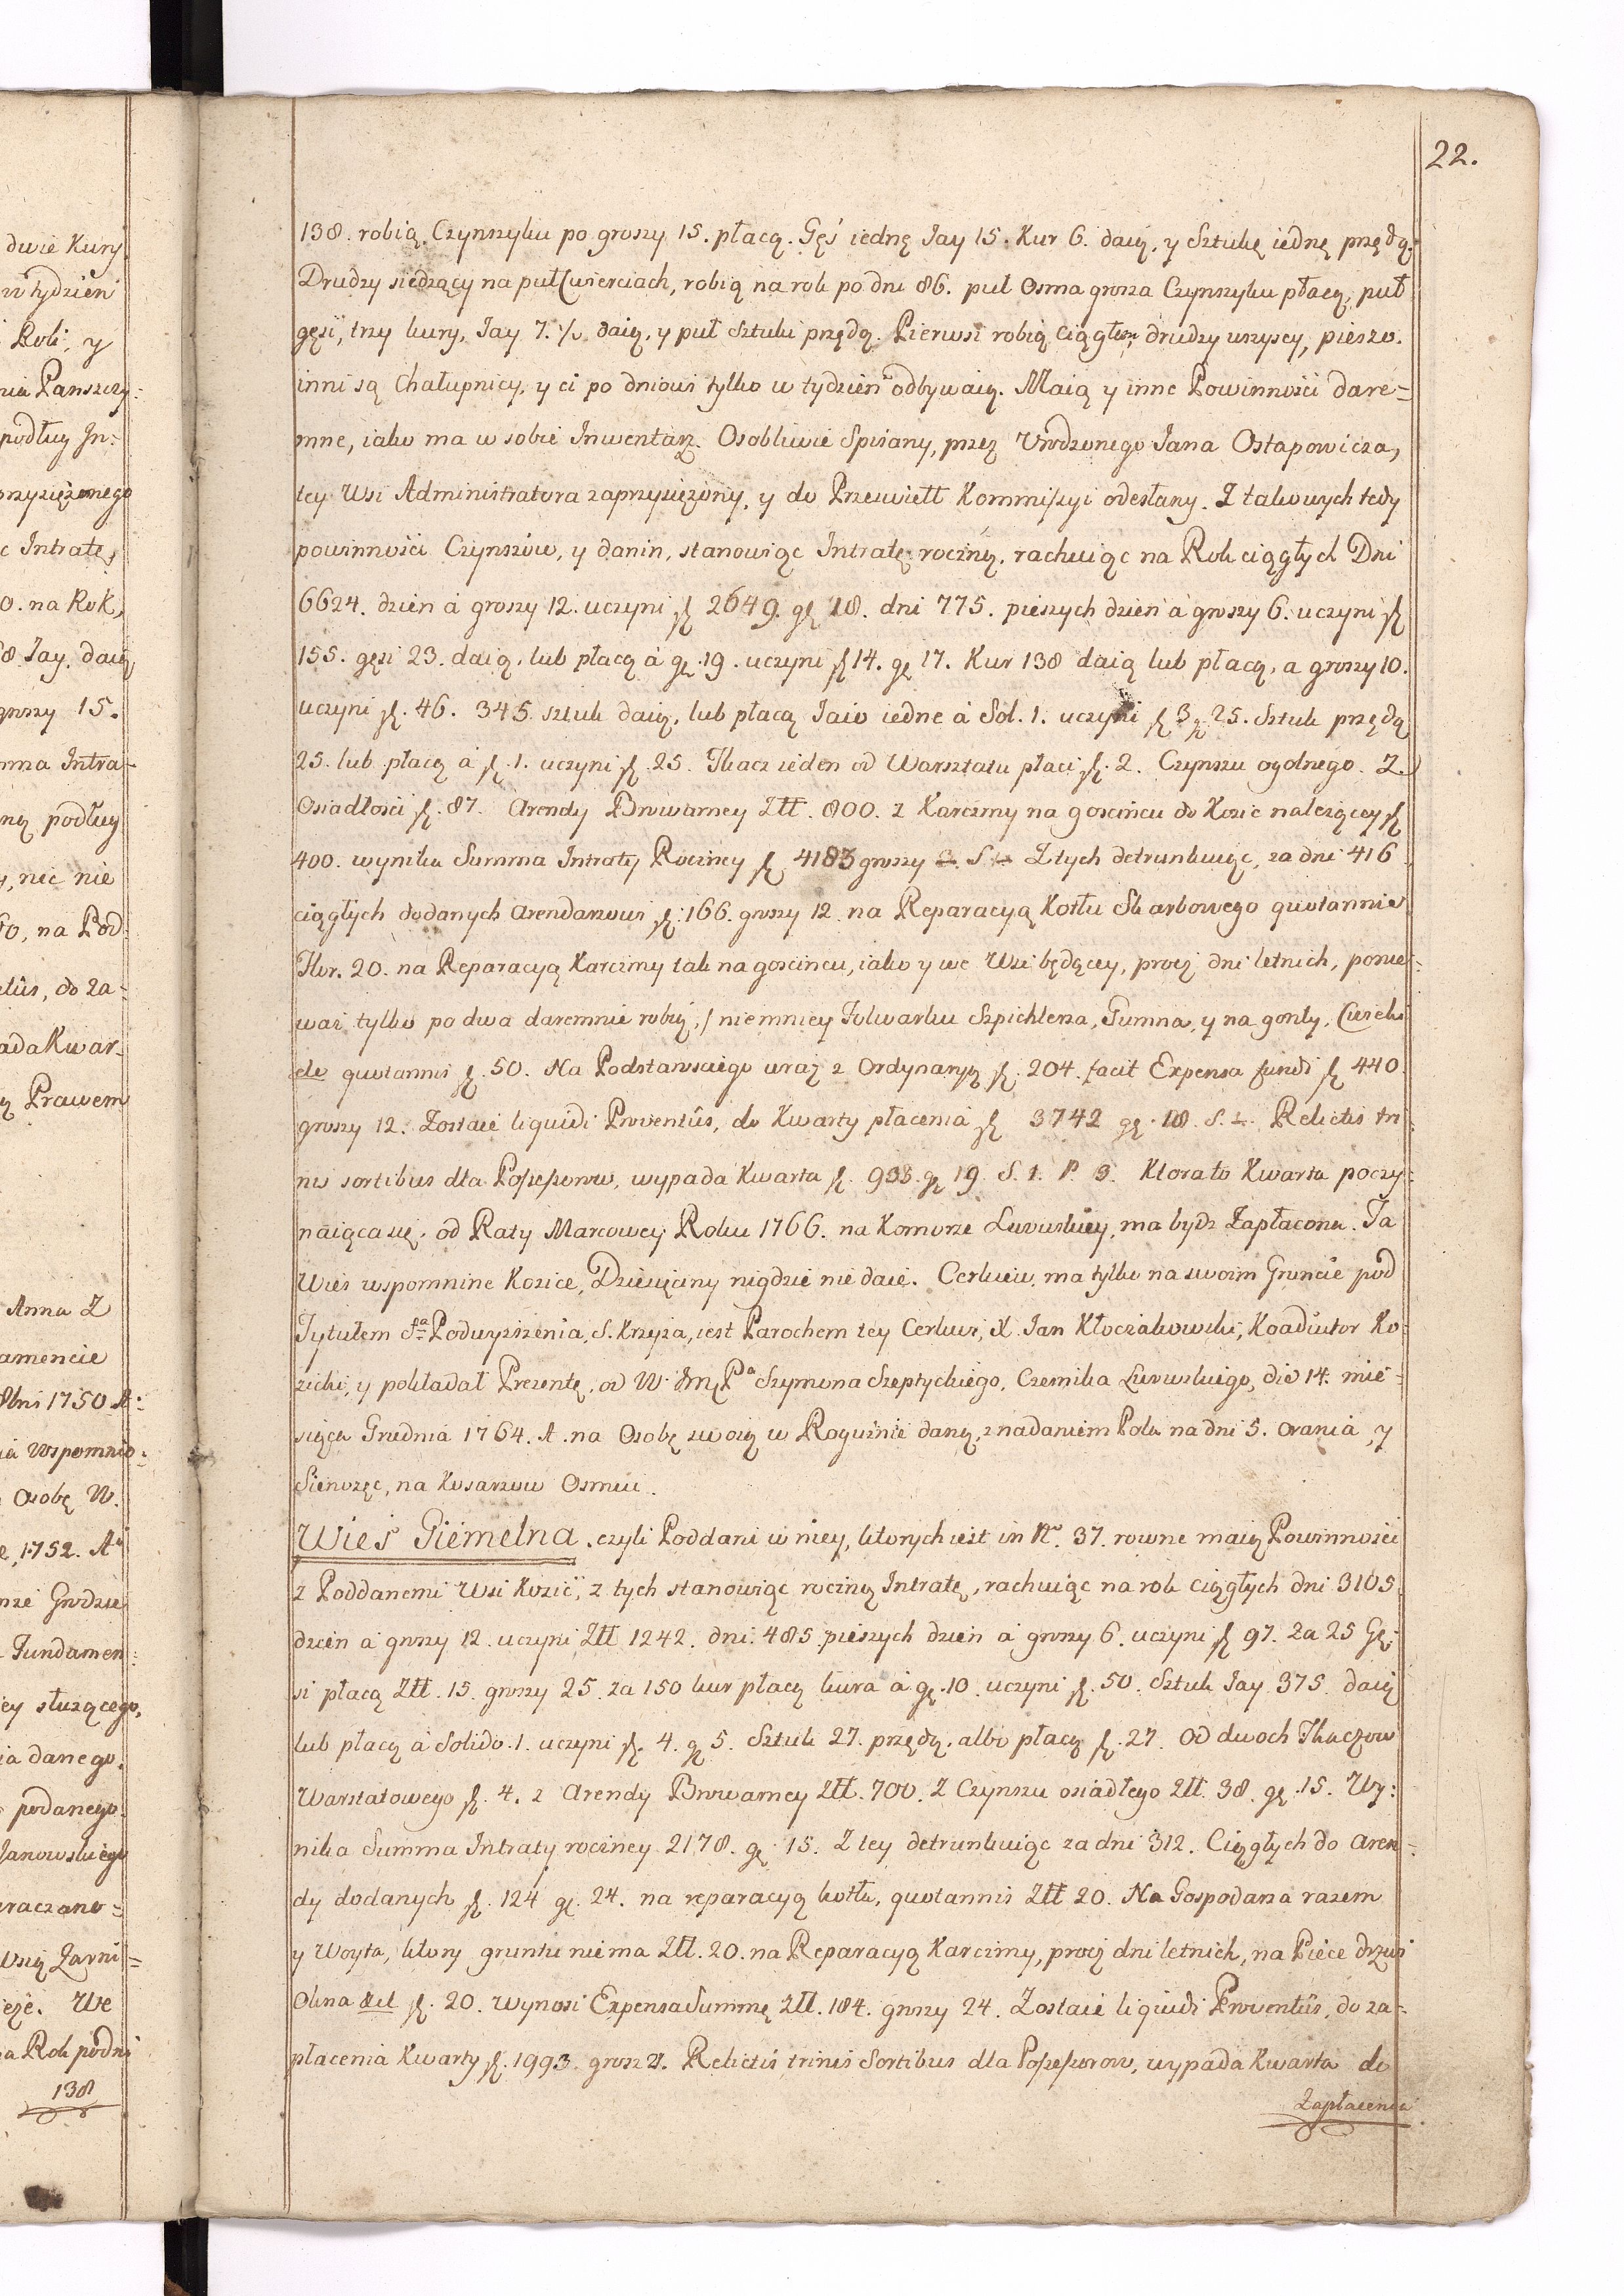 22.
138. robią. Czynszyku po groszy 15. płacą. Gęś iednę Jay 15. Kur 6. daią, y Sztukę iednę przędą.
Drudzy siedzący na puł Cwierciach, robią na rok po dni 86. puł Osma grosza Czynszyku płacą, puł
gęsi, trzy kury, Jay 7. ½ daią, y puł Sztuki przędą. Pierwsi robią ciągłem, drudzy wszyscy, pieszo.
inni są Chałupnicy, y ci po dniowi tylko w tydzień odbywaią. Maią y inne Powinności dare=
mne, iako ma w sobie Inwentarz. Osobliwie Spisany, przez Urodzonego Jana Ostapowicza,
tey Wsi Administratora zaprzysiężony, y do Przeswiett Kommissyi odesłany. Z takowych tedy
powinności Czynszów, y danin, stanowiąc Intratę roczną, rachuiąc na Rok ciągłych Dni
6624. dzień á groszy 12. uczyni zł 2649. gr 18. dni 775. pieszych dzień á groszy 6. uczyni zł
155. gęsi 23. daią, lub płacą á gr. 19. uczyni zł 14. gr 17. Kur 138 daią lub płacą, a groszy 10.
uczyni zł. 46. 345 sztuk daią, lub płacą Jaio iedne á Sol. 1. uczyni zł 3 gr 25. Sztuk przędą
25. lub płacą á zł. 1. uczyni zł. 25. Tkacz ieden od Warsztatu płaci zł. 2. Czynszu ogolnego. Z
Osiadłości zł. 87. Arendy Browarney Złł. 800. z Karczmy na goscińcu do Kozic należącey zł
400. wynika Summa Intraty Roczney zł 4183 groszy Z tych detrunkuiąc, za dni 416
ciągłych dodanych Arendarzowi zł. 166. groszy 12. na Reparacyą Kotła Skarbowego quotannie
Flor. 20. na Reparacyą Karczmy tak na goscincu, iako y we Wsi będącey, procz dni letnich, ponie=
waz tylko po dwa daremnie robią, niemniey Folwarku Szpichlerza, Gumna, y na gonty, Cwieki
etc quotannis zł. 50. Na Podstarosciego wraz z Ordynaryą zł. 204. facit Expensa fundi zł 440.
groszy 12. Zostaie liquidi Proventûs, do Kwarty płacenia zł 3742 gr. 18. S. Relictis tri:
nis sortibus dla Possessorow, wypada Kwarta zł. 935. gr 19. S. 1. P. 3. Ktora to Kwarta poczy:
naiąca się, od Raty Marcowey Roku 1766. na Komorze Lwowskiey, ma bydz Zapłacona. Ta
Wieś wspomnine Kozice, Dziesięciny nigdzie nie daie. Cerkiew, ma tylko na swoim Gruncie pod
Tytułem Sᵃ Podwyższenia, S. Krzyża, iest Parochem tey Cerkwi, X Jan Kłoczakowski, Koadiutor Ko:
zicki, y pokładał Prezentę, od W. Jmć Pᵃ Szymona Szeptyckiego, Czesnika Lwowskiego, die 14. mie=
siąca Grudnia 1764. A. na Osobę swoią w Roguźnie daną, z nadaniem Pola na dni 5. Orania, y
Sienożęc, na Kosarzow Osmiu.
Wieś Giemelna, czyli Poddani w niey, ktorych iest in Nr. 37. rowne maią Powinności
z Poddanemi Wsi Kozić, z tych stanowiąc roczną Intratę, rachuiąc na rok ciągłych dni 3105.
dzień á groszy 12. uczyni Złł 1242. dni. 485. pieszych dzień á groszy 6. uczyni zł 97. Za 25 Gę:
si płacą Złł. 15. groszy 25. za 150 kur płacą kura á gr. 10. uczyni zł. 50. Sztuk Jay 375. daią
lub płacą á Solido. 1. uczyni zł. 4. gr 5. Sztuk 27. przędą, albo płacą zł. 27. Od dwoch Tkaczow
Warstatowego zł. 4. z Arendy Browarney Złł. 700. Z Czynszu osiadłego Złł. 38. gr. 15. Wy:
nika Summa Intraty roczney 2178. gr. 15. Z tey detrunkuiąc za dni 312. Ciągłych do Aren=
dy dodanych zł. 124 gr. 24. na reparacyą kotła, quotannis Złł 20. Na Gospodarza razem
y Woyta, ktory gruntu niema Złł. 20. na Reparacyą Karczmy, procz dni letnich, na Piece drzwi
Okna zł. 20. Wynosi Expensa Summę Złł. 184. groszy 24. Zostaie liquidi Proventûs, do za=
płacenia Kwarty zł. 1993. grosz 21. Relictis trinis Sortibus dla Possessorow, wypada Kwarta do
Zapłacenia
dwie Kury
w tydzień
Roli, y
nia Panszczy:
podług In:
przysiężonego
c Intratę,
0. na Rok,
8 Jay. daią
groszy 15.
mma Intra=
ną podług
y, nic nie
60, na Pod
do za=
ada Kwar=
Prawem
Anna Z
amencie
8bris 1750 A:
ia Wspomnio:
Osobę W.
1752. Aⁱ
Grodzie
Fundamen:
ey służącego,
ia danego.
podanego.
Janowskiego
raczano=
We
na Rok po dni
138